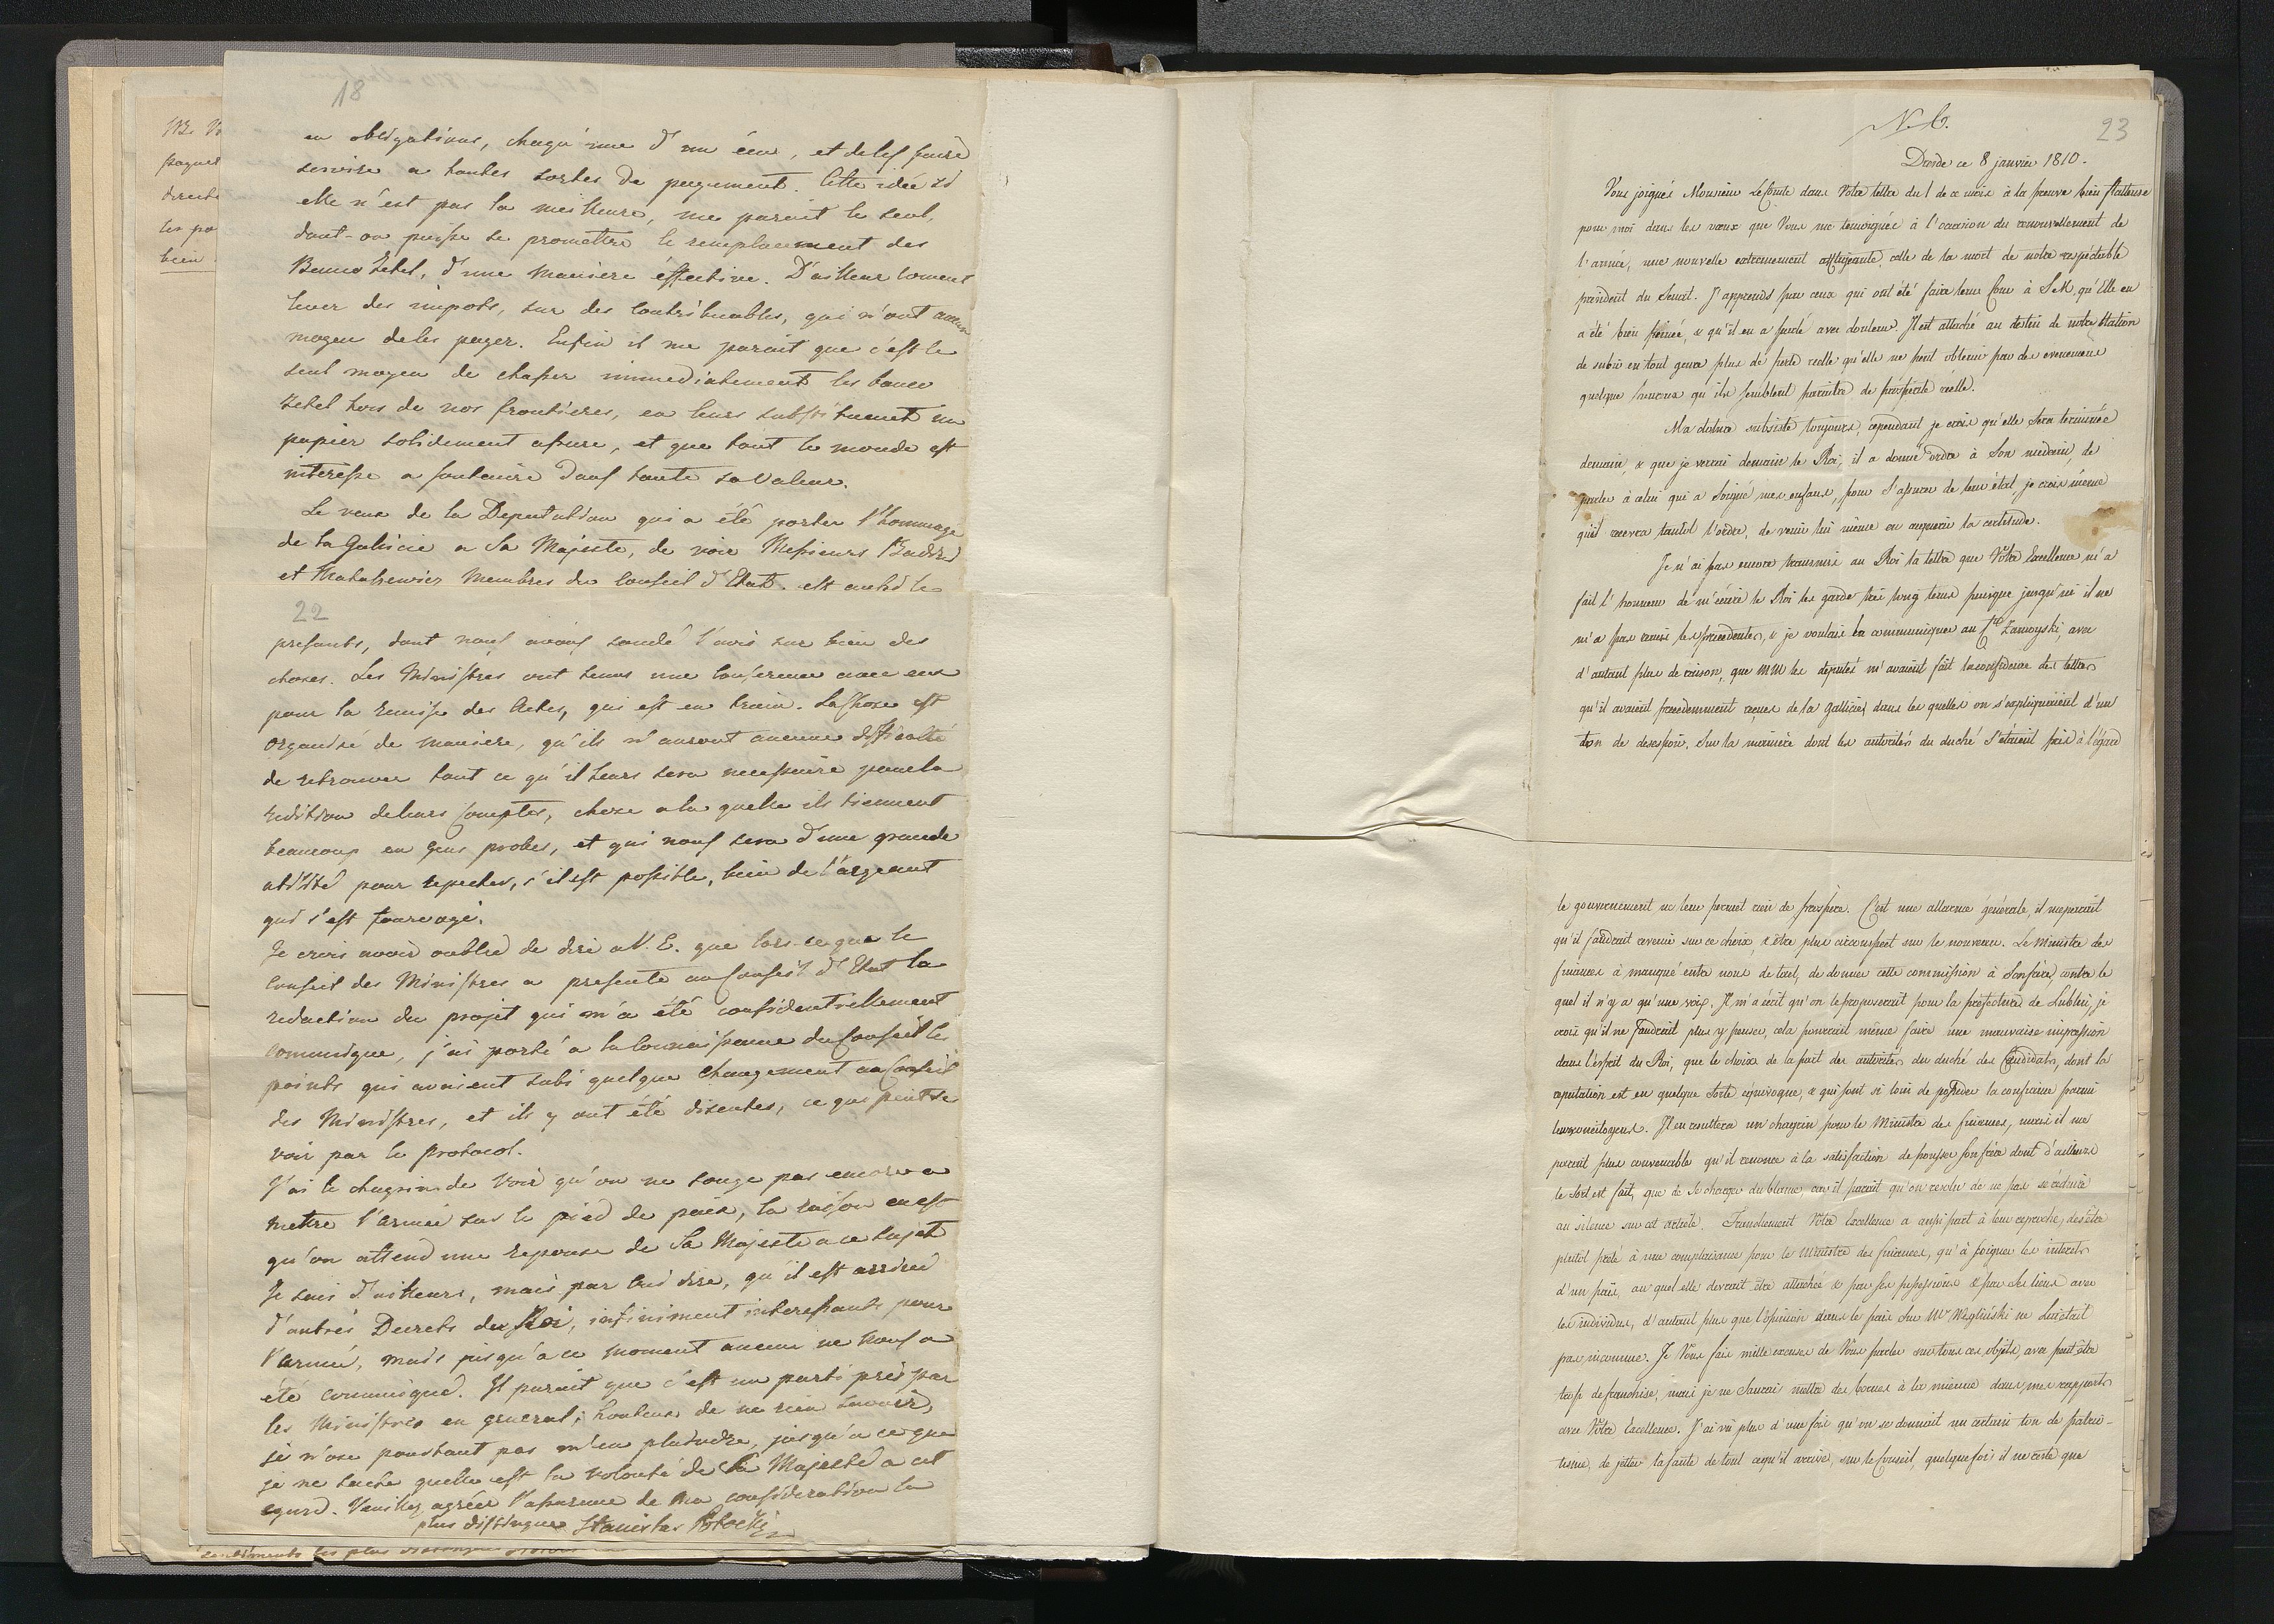 18
en obligations, chaqu'une d'un écu, et de les faire
servire a toutes sortes de payement. Cette idée si
elle n'est pas la meilleure, me parait le seul,
dont-on puisse se promettre le remplacement des
Banco Zetel, d'une maniere éffective. D'ailleur coment
lever des impots, sur des contribuables, qui n'ont aucun
moyen de les payer. Enfin il me parait que c'est le
seul moyen de chasser immediatement les banco
zetel hors de nos frontieres, en leurs substituant un
papier solidement assure, et que tout le monde est
interesse a soutenire dans toute sa valeur.
Le veux de la Deputation qui a été porter l'hommage
de la Gallicie a Sa Majeste, de voir Messieurs Badeni
et Matuszewicz Membres du Conseil d'Etat. est
22
presants, dont nous avons sondé l'avis sur bien des
choses. Les Ministres ont tenus une conference avec eux
pour la remise des Actes, qui est en train. La chose est
organisé de maniere, qu'ils n'auront aucune difficulté
de retrouver tout ce qu'il leurs sera necessaire pour la
redition de leurs Comptes, chose a la quelle ils tiennent
beaucoup en gens probes, et qui nous sera d'une grande
utilité pour repecher, s'il est possible, bien de l'argeant
qui s'est fourvagé.
Je crois avoir oublié de dire a V. E. que lors-ceque le
Conseil des Ministres a presenté au Conseil d'Etat la
redaction du projet qui m'a été confidentiellement
comunique, j'ai porté a la connaissance du Conseil les
points qui avaient subi quelque changement au Conseil
des Ministres, et ils y ont été discutes, ce qui peut se
voir par le protocol.
J'ai le chagrin de voir qu'on ne songe pas encore a
mettre l'armée sur le pied de paix, la raison en est
qu'on attend une reponse de Sa Majeste a ce sujet
Je sais d'ailleurs, mais par oui dire, qu'il est arrivé
d'autres Decrets du Roi, infiniment interessants pour
l'armée, mais jusqu'a ce moment aucun ne nous a
été communiqué. Il parait que c'est un parti pris par
les Ministres en general, honteux de ne rien savoir,
je n'ose pourtant pas m'en plaindre, jusqu'a ce que
je ne sache quelle est la volonté de Sa Majesté a cet
egard. Veuillez agréer l'assurance de ma consideration la
plus distinguee Stanislas Potocki
N. 6.
23
Dresde ce 8 janvier 1810.
Vous joignés Monsieur le Comte dans Votre lettre du 1 de ce mois à la preuve bien flatteuse
pour moi dans les voeux que Vous me temoignée à l'occasion du renouvellement de
l'année, une nouvelle extremement affligeante, celle de la mort de notre respectable
president du Senat. J'apprends par ceux qui ont été faire leur Cour à S.M. qu'Elle en
a été bien peinée, & qu'il en a parlé avec douleur. Il est attaché au destin de notre Nation
de subir en tout genre plus de perte reelle qu'elle ne peut obtenir par des evenemens
quelque heureux qu'ils semblent paraitre de prosperité reelle.
Ma cloture subsiste toujours, cependant je crois qu'elle sera terminée
demain & que je verrai demain le Roi, il a donné ordre à Son medecin, de
parler à celui qui a soigné mes enfans, pour s'assurer de leur état, je crois même
qu'il recevra tantôt l'ordre, de venir lui même en acquerir la certitude.
Je n'ai pas encore transmis au Roi la lettre que Votre Excellence m'a
fait l'honneur de m'écrire le Roi les garde très long tems puisque jusqu'ici il ne
m'a pas remis les precedentes, & je voulais la communiquer au Cte Zamoyski, avec
d'autant plus de raison, que MM les deputés m'avaient fait la confidence des lettres
qu'il avaient precedemment reçues de la Gallicie, dans les quelles on s'expliquaient d'un
ton de desespoir, sur la maniere dont les autorités du duché s'étaient pris à l'égard
le gouvernement ne leur permet rien de prospere. C'est une allarme générale, il me parait
qu'il faudrait revenir sur ce choix, & être plus circonspect sur le nouveau. Le Ministre des
finances à manqué entre nous de tact, de donner cette commission à Son frere, contre le
quel il n'y a qu'une voix. Il m'a écrit qu'on le proposerait pour la prefecture de Lublin, je
crois qu'il ne faudrait plus y penser, cela pourrait même faire une mauvaise impression
dans l'esprit du Roi, que le choix de la part des autorités du duché des Candidats, dont la
reputation est en quelque sorte equivoque, & qui sont si loin de posseder la confiance parmi
leurs concitoyens. Il en resultera un chagrin pour le Ministre des finances, mais il me
parait plus convenable qu'il renonce à la satisfaction de pousser son frère dont d'ailleurs
le sort est fait, que de se charger du blame, car il parait qu'on resolu de ne pas se réduire
au silence sur cet article. Franchement Votre Excellence a aussi part à leur reproche, de s'etre
plutôt preté à une complaisance pour le Ministre des finances, qu'à soigner les interets
d'un païs, au quel elle devrait être attachée & par ses possessions & par ses liens avec
les individus, d'autant plus que l'opinion dans le païs sur Mr Węgliński ne Lui était
pas inconnue. Je Vous fais mille excuses de Vous parler sur tous ces objets, avec peut être
trop de franchise, mais je ne saurais mettre des bornes à la mienne dans mes rapports
avec Votre Excellence. J'ai vû plus d'une fois qu'on se donnait un certain ton de patrio-
tisme, de jetter la faute de tout ce qu'il arrive, sur le Conseil, quelque fois il ne reste que